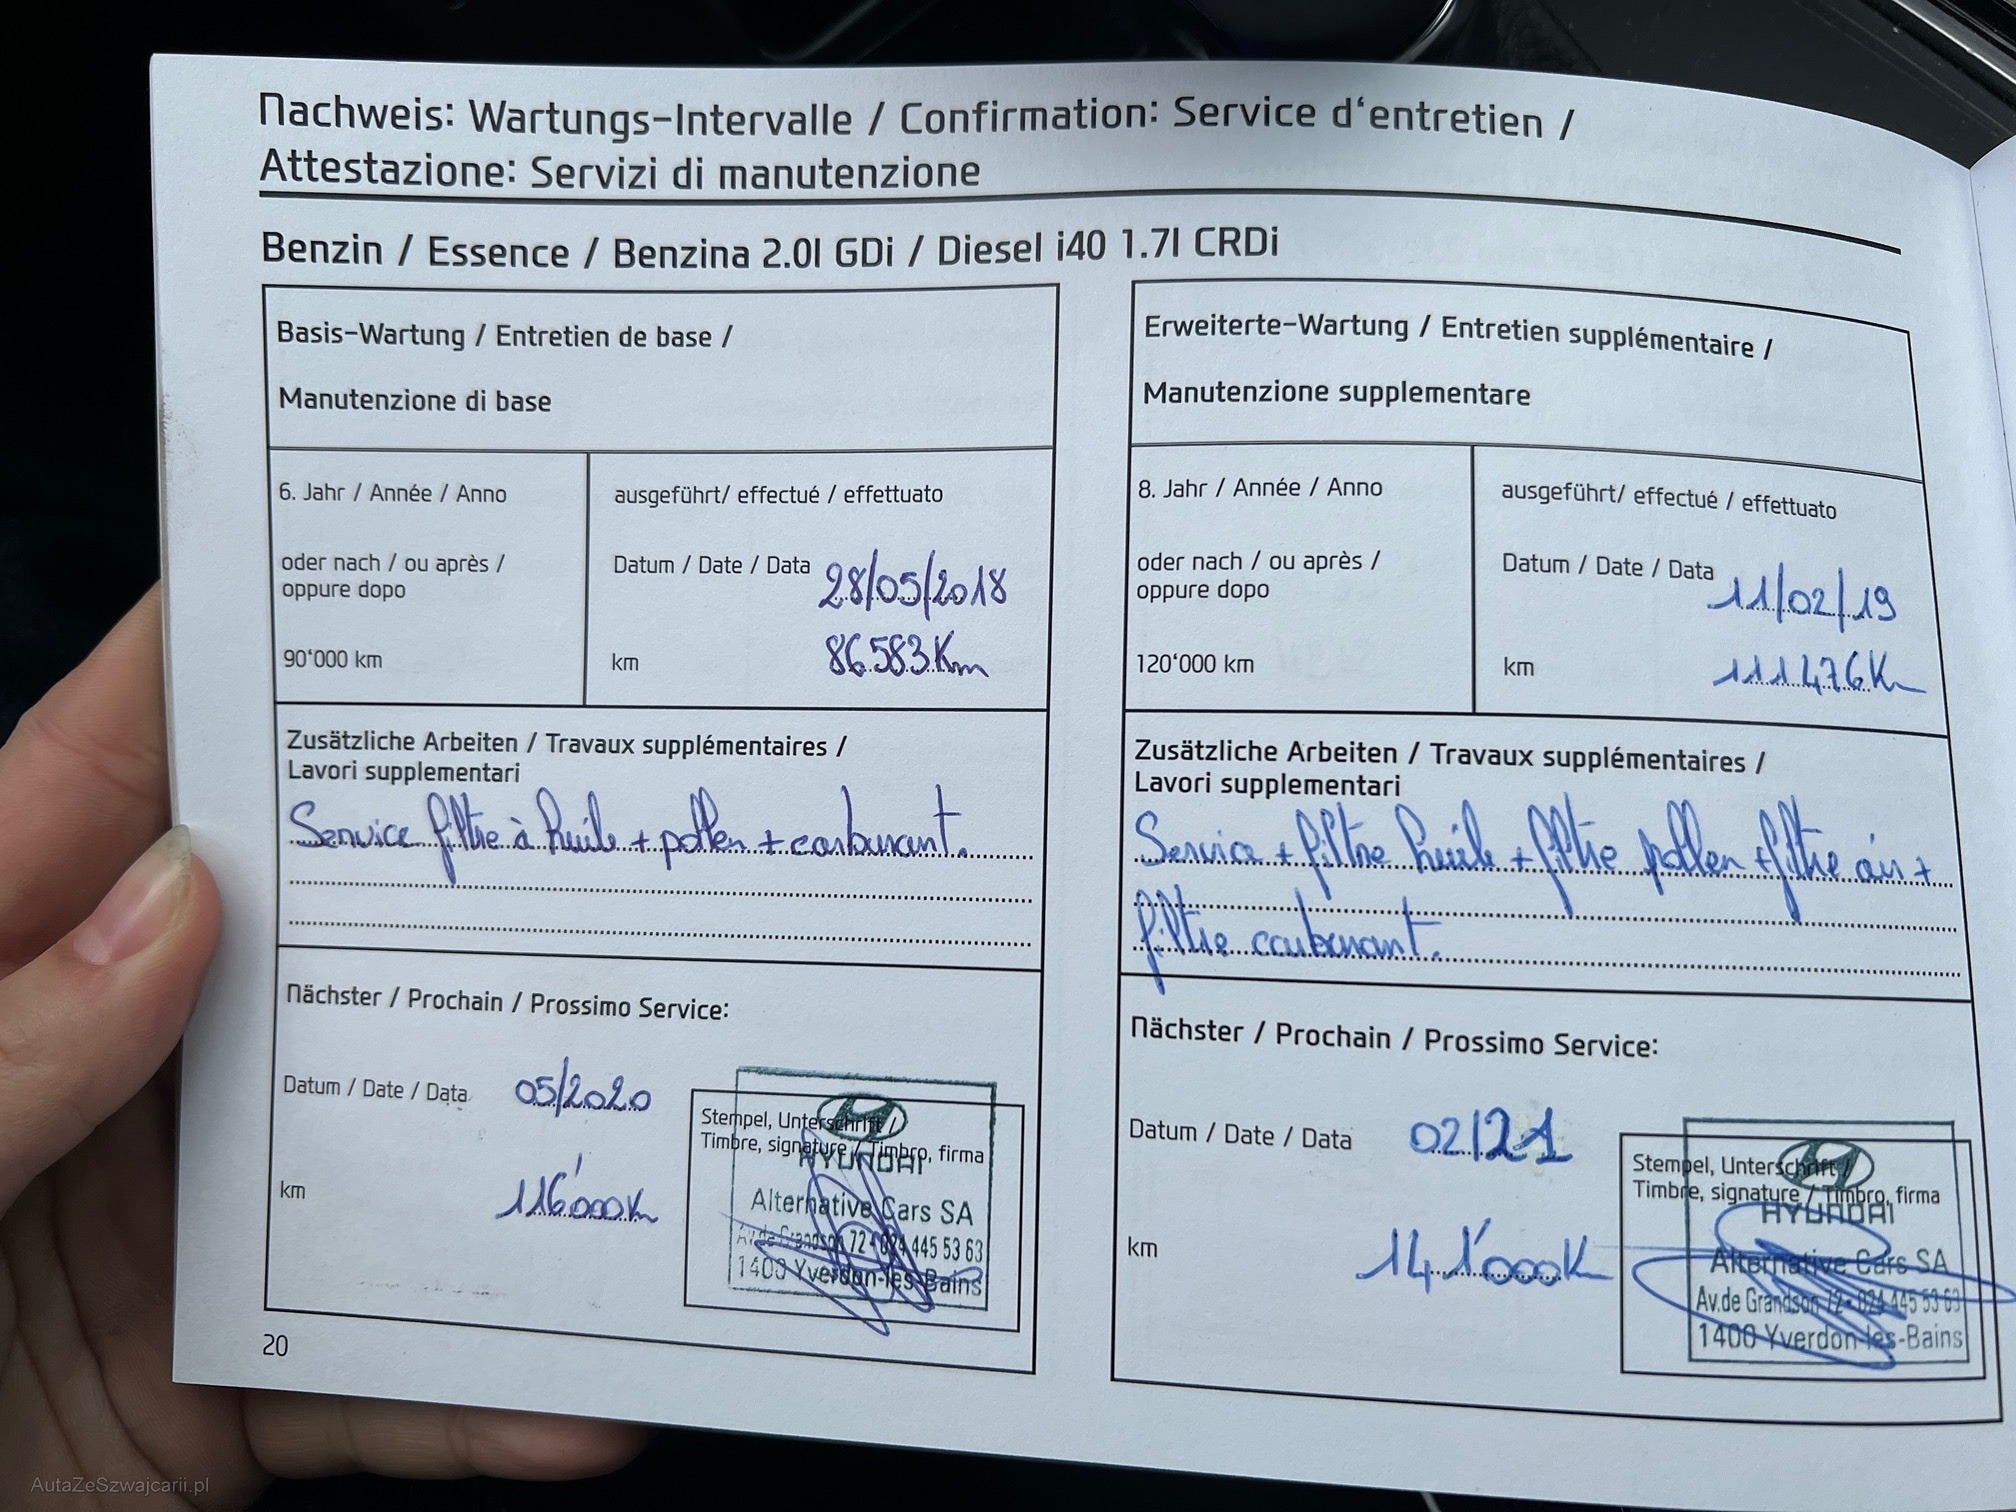 Nachweis: Wartungs-Intervalle / Confirmation: Service d'entretien /
Attestazione: Servizi di manutenzione
Benzin / Essence / Benzina 2.0l GDi / Diesel i40 1.7l CRDi
Basis-Wartung / Entretien de base /
Manutenzione di base
6. Jahr / Année / Anno
oder nach / ou après /
oppure dopo
90'000 km
ausgeführt/ effectué / effettuato
Datum / Date / Data 28/05/2018
km 86.583 Km
Zusätzliche Arbeiten / Travaux supplémentaires /
Lavori supplementari
Service filtre à huile + pollen + carburant.
Nächster / Prochain / Prossimo Service:
Datum / Date / Data 05/2020
km 116'000 K
Stempel, Unterschrift /
Timbre, signature / Timbro, firma
HYUNDAI
Alternative Cars SA
Av. de Grandson 72 - 024 445 53 63
1400 Yverdon-les-Bains
20
Erweiterte-Wartung / Entretien supplémentaire /
Manutenzione supplementare
8. Jahr / Année / Anno
oder nach / ou après /
oppure dopo
120'000 km
ausgeführt/ effectué / effettuato
Datum / Date / Data 11/02/19
km 111476 K
Zusätzliche Arbeiten / Travaux supplémentaires /
Lavori supplementari
Service + filtre huile + filtre pollen + filtre air +
filtre carburant.
Nächster / Prochain / Prossimo Service:
Datum / Date / Data 02/21
km 141'000 K
Stempel, Unterschrift /
Timbre, signature / Timbro, firma
HYUNDAI
Alternative Cars SA
Av. de Grandson 72 - 024 445 53 63
1400 Yverdon-les-Bains
AutaZeSzwajcarii.pl